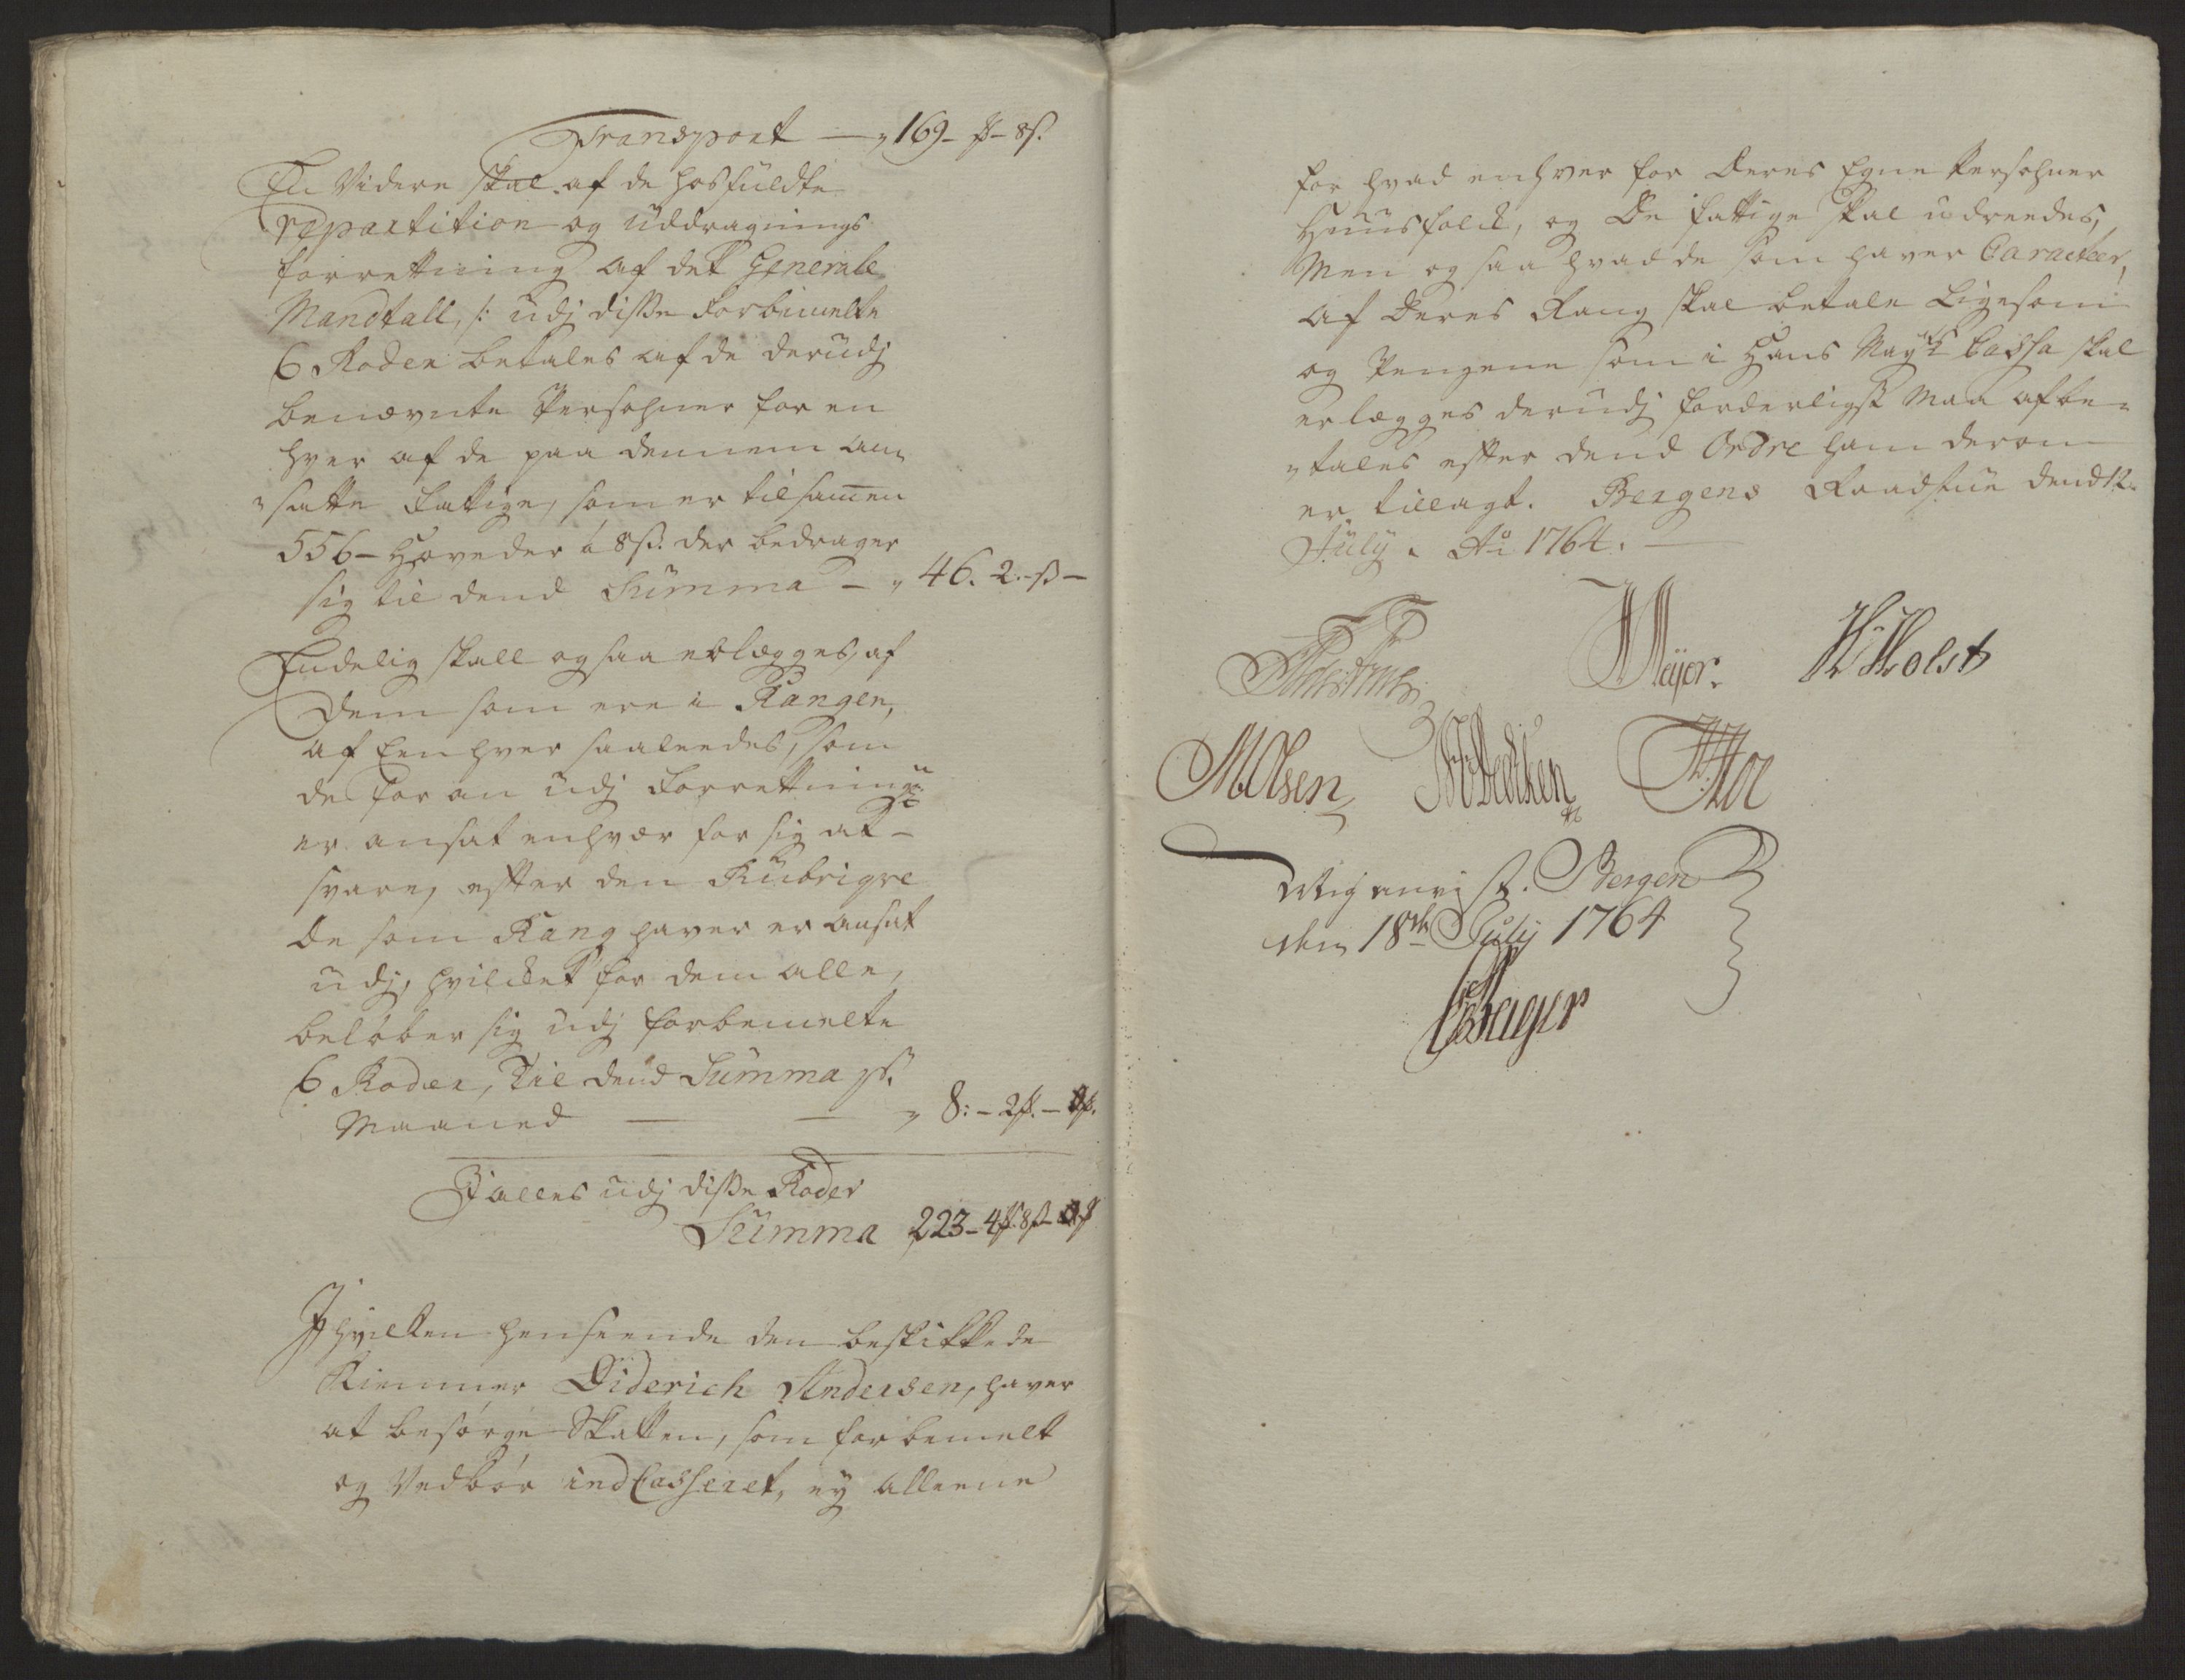 Transport — „ 169 - ß - 8 s.
En Videre skal af de hosfuldte
repartition og Uddragnings
forrettning af det Generale
Mandtall, /: udj disse forbemelte
6 Roder betales af de derudj
benævnte Persohner for en
hver af de paa dennem an„
„satte Fattige, som er tilsamen
556 - Hoveder á 8 ß. der bedrager
sig til dend Summa — „ 46. 2. - ß -
Endelig skall ogsaa erlægges, af
dem som ere i Rangen,
af Een hver saaleedes, som
de for an udj Forrettningen
er ansat enhver for sig at -
svare, efter den Rubrigve
de som Rang haver er ansat
udj, hvilket for dem alle,
beløber sig udj forbemelte
6 Roder, Til dend Summa pr.
Maaned — — „ 8: - 2 ß. -
I alles udj disse Roder
Summa 223 - 4 ß. 8 ß -
I hvilken henseende den beskikkede
Kiemner Diderich Andersen, haver
at besørge Skatten, som forbemelt
og Vedbør indCasseret, ey alleene
for hvad enhver for Deres Egne Persohner
Huusfolk, og De fattige skal udreedes,
Men og saa hvad de som haver Caracteer,
af Deres Rang skal betale Ligesom
og Pengene som i Hans Mayts Cassa skal
erlægges derudj forderligst maa afbe„
„tales efter dend Ordre ham derom
er tillagt. Bergens Raadstue dend 12
July Ao 1764. —
Meyer. H Holst
M Olsen Fredichsen
Mig anvist. Bergen
den 18de July 1764